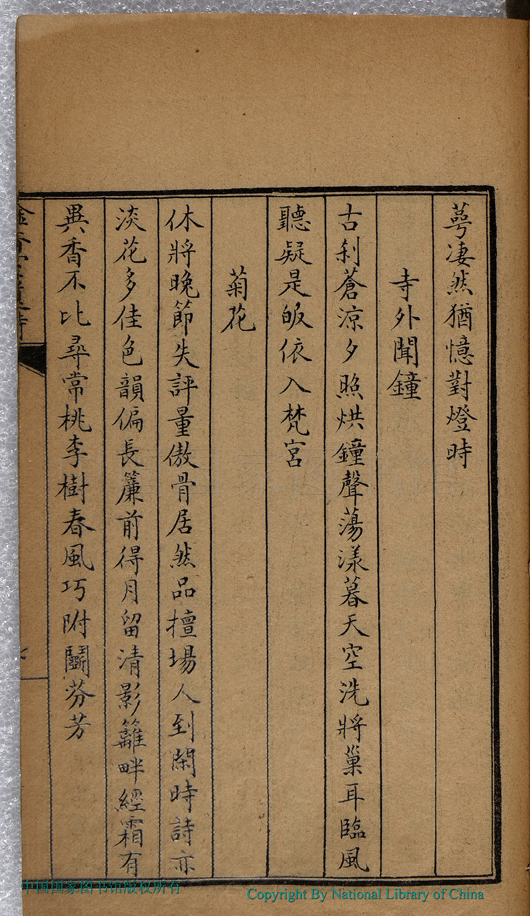 萼凄然猶憶對燈時
寺外聞鐘
古刹蒼涼夕照烘鐘聲蕩漾暮天空洗將巢耳臨風
聽疑是皈依入梵宮
菊花
休將晚節失評量傲骨居然品擅場人到閑時詩亦
淡花多佳色韻偏長簾前得月留清影籬畔經霜有
異香不比尋常桃李樹春風巧附鬬芬芳
中国国家图书馆版权所有
Copyright By National Library of China